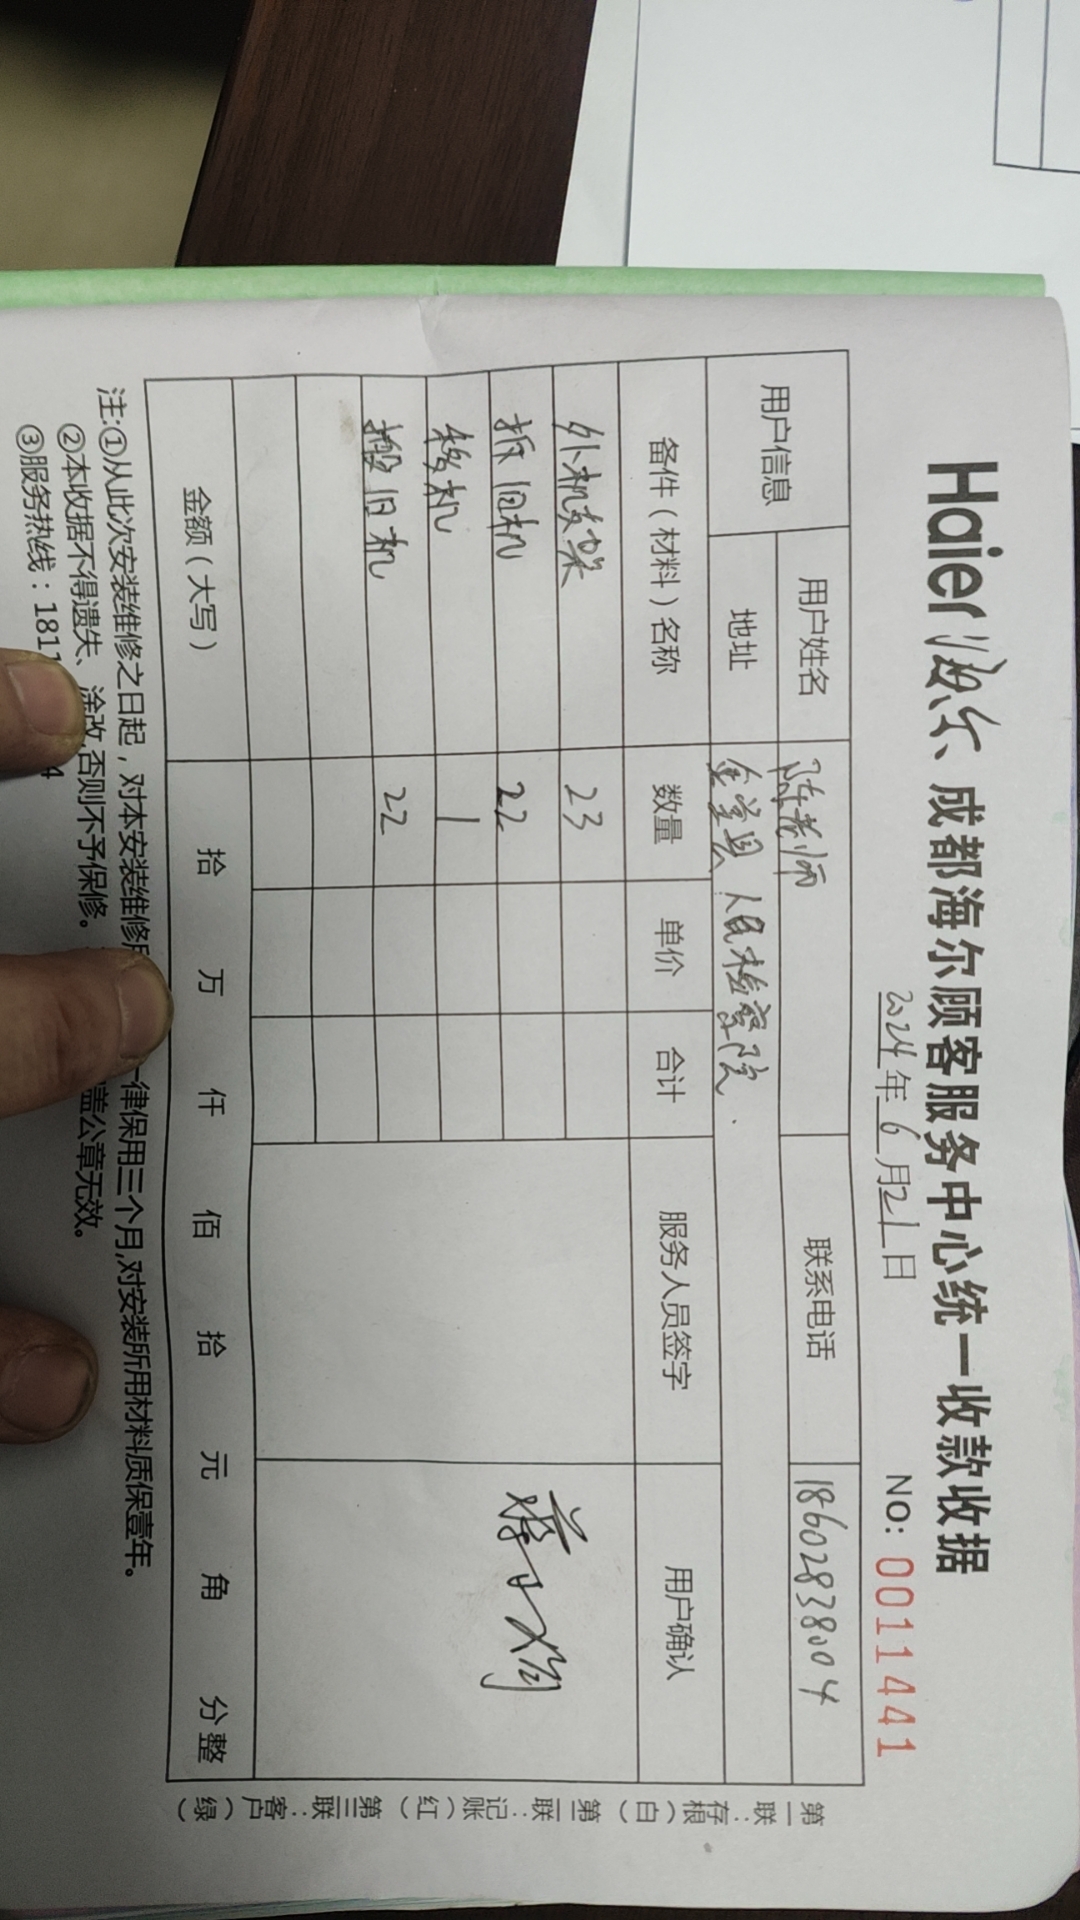 Haier 海尔 成都海尔顾客服务中心统一收款收据
2024年6月21日 NO: 0011441
用户信息 用户姓名 陈老师 联系电话 18602838004
地址 金堂县人民检察院.
备件(材料)名称 数量 单价 合计 服务人员签字 用户确认
外机支架 23
拆旧机 22
移机 1
搬旧机 22
金额(大写) 拾 万 仟 佰 拾 元 角 分整
注:①从此次安装维修之日起,对本安装维修 一律保用三个月,对安装所用材料质保壹年。
②本收据不得遗失、涂改否则不予保修。 盖公章无效。
③服务热线:1811 4
第一联:存根(白) 第二联:记账(红) 第三联:客户(绿)